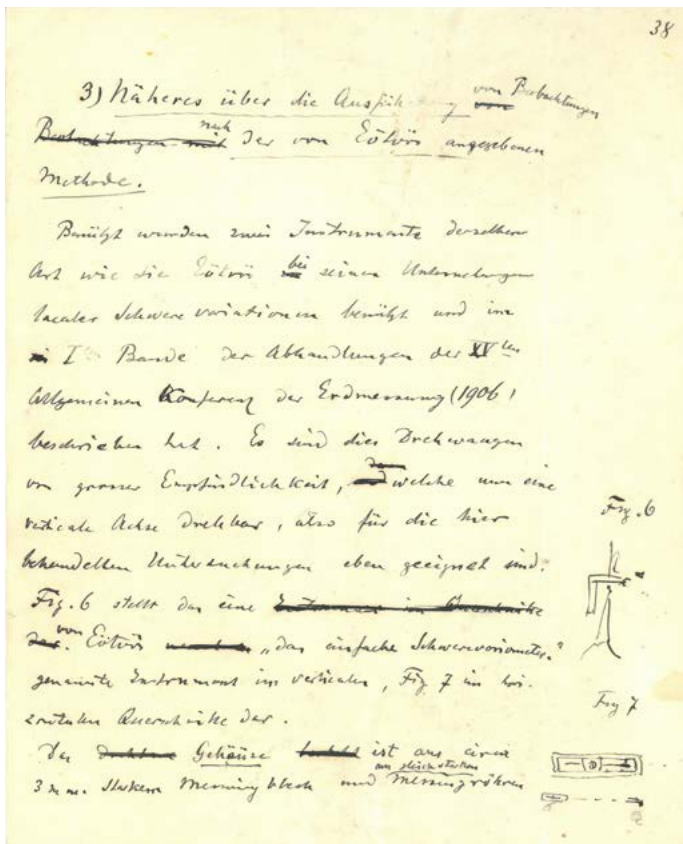 38
3) Näheres über die Ausführung von Beobachtungen
nach der von Eötvös angegebenen
Methode.
Benützt wurden zwei Instrumente derselben
Art wie sie Eötvös bei seinen Untersuchungen
localer Schwere variationen benützt und im
I Bande der Abhandlungen der XVten
Allgemeinen Konferenz der Erdmessung (1906)
beschrieben hat. Es sind dies Drehwaagen
von grosser Empfindlichkeit, welche um eine
verticale Achse drehbar, also für die hier
behandelten Untersuchungen eben geeignet sind.
Fig. 6
Fig. 6 stellt das eine
von Eötvös „das einfache Schwerevariometer"
genannte Instrument im verticalen, Fig 7 im hori-
zontalen Querschnitte dar.
Fig 7
Das Gehäuse ist aus circa
3 m.m. starkem Messingblech und aus gleich starken Messingröhren